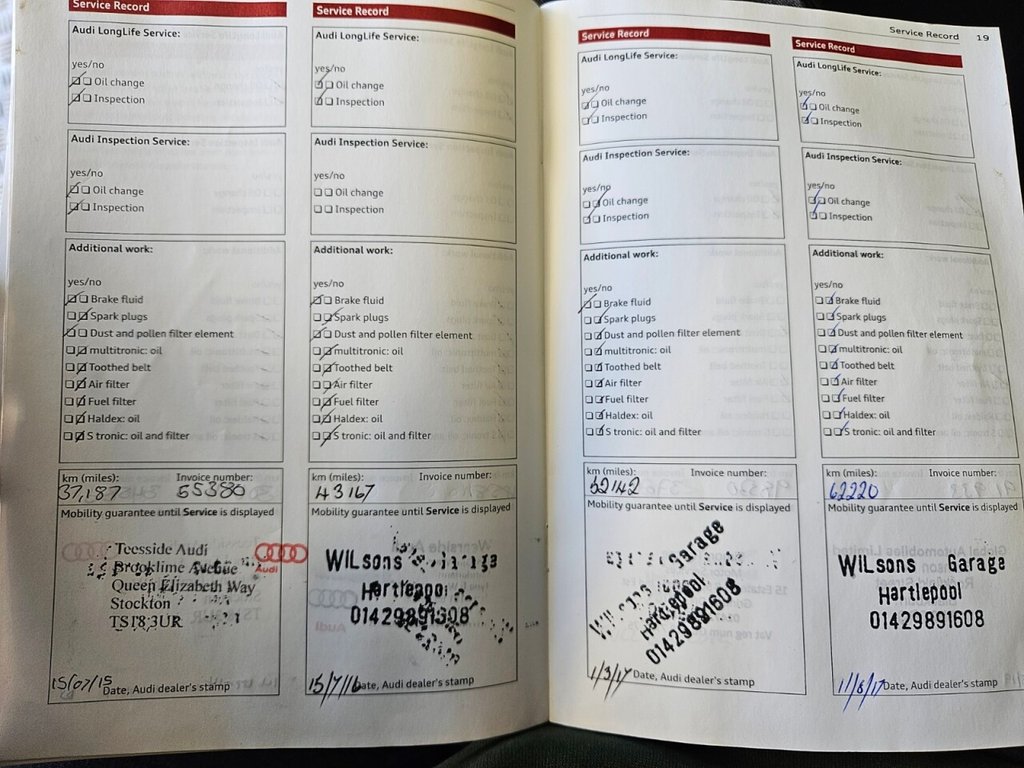 Service Record
Audi LongLife Service:
yes/no
Oil change
Inspection
Audi Inspection Service:
yes/no
Oil change
Inspection
Additional work:
yes/no
Brake fluid
Spark plugs
Dust and pollen filter element
multitronic: oil
Toothed belt
Air filter
Fuel filter
Haldex: oil
S tronic: oil and filter
km (miles): Invoice number:
37,187 55380
Mobility guarantee until Service is displayed
Teesside Audi
Brooklime Avenue
Queen Elizabeth Way
Stockton
TS18 3UR
Audi
15/07/15 Date, Audi dealer's stamp
Service Record
Audi LongLife Service:
yes/no
Oil change
Inspection
Audi Inspection Service:
yes/no
Oil change
Inspection
Additional work:
yes/no
Brake fluid
Spark plugs
Dust and pollen filter element
multitronic: oil
Toothed belt
Air filter
Fuel filter
Haldex: oil
S tronic: oil and filter
km (miles): Invoice number:
43167
Mobility guarantee until Service is displayed
WILsons Garage
Hartlepool
01429891608
15/7/16 Date, Audi dealer's stamp
Service Record 19
Service Record
Audi LongLife Service:
yes/no
Oil change
Inspection
Audi Inspection Service:
yes/no
Oil change
Inspection
Additional work:
yes/no
Brake fluid
Spark plugs
Dust and pollen filter element
multitronic: oil
Toothed belt
Air filter
Fuel filter
Haldex: oil
S tronic: oil and filter
km (miles): Invoice number:
52142
Mobility guarantee until Service is displayed
WILsons Garage
Hartlepool
01429891608
1/3/17 Date, Audi dealer's stamp
Service Record
Audi LongLife Service:
yes/no
Oil change
Inspection
Audi Inspection Service:
yes/no
Oil change
Inspection
Additional work:
yes/no
Brake fluid
Spark plugs
Dust and pollen filter element
multitronic: oil
Toothed belt
Air filter
Fuel filter
Haldex: oil
S tronic: oil and filter
km (miles): Invoice number:
62220
Mobility guarantee until Service is displayed
WILsons Garage
Hartlepool
01429891608
11/8/17 Date, Audi dealer's stamp